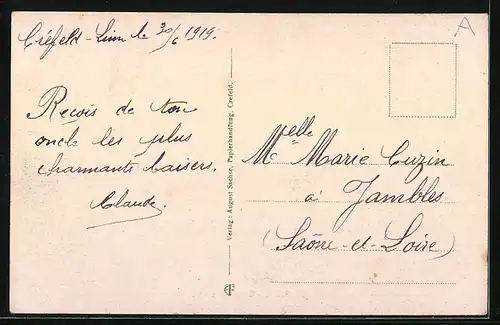 Créfeld - Linn le 30/6 1919.
A
Reçois de ton
oncle les plus
charmants baisers.
Claude.
Verlag: August Sachse, Papierhandlung, Crefeld.
Melle Marie Cuzin
à Jambles
(Saône-et-Loire)